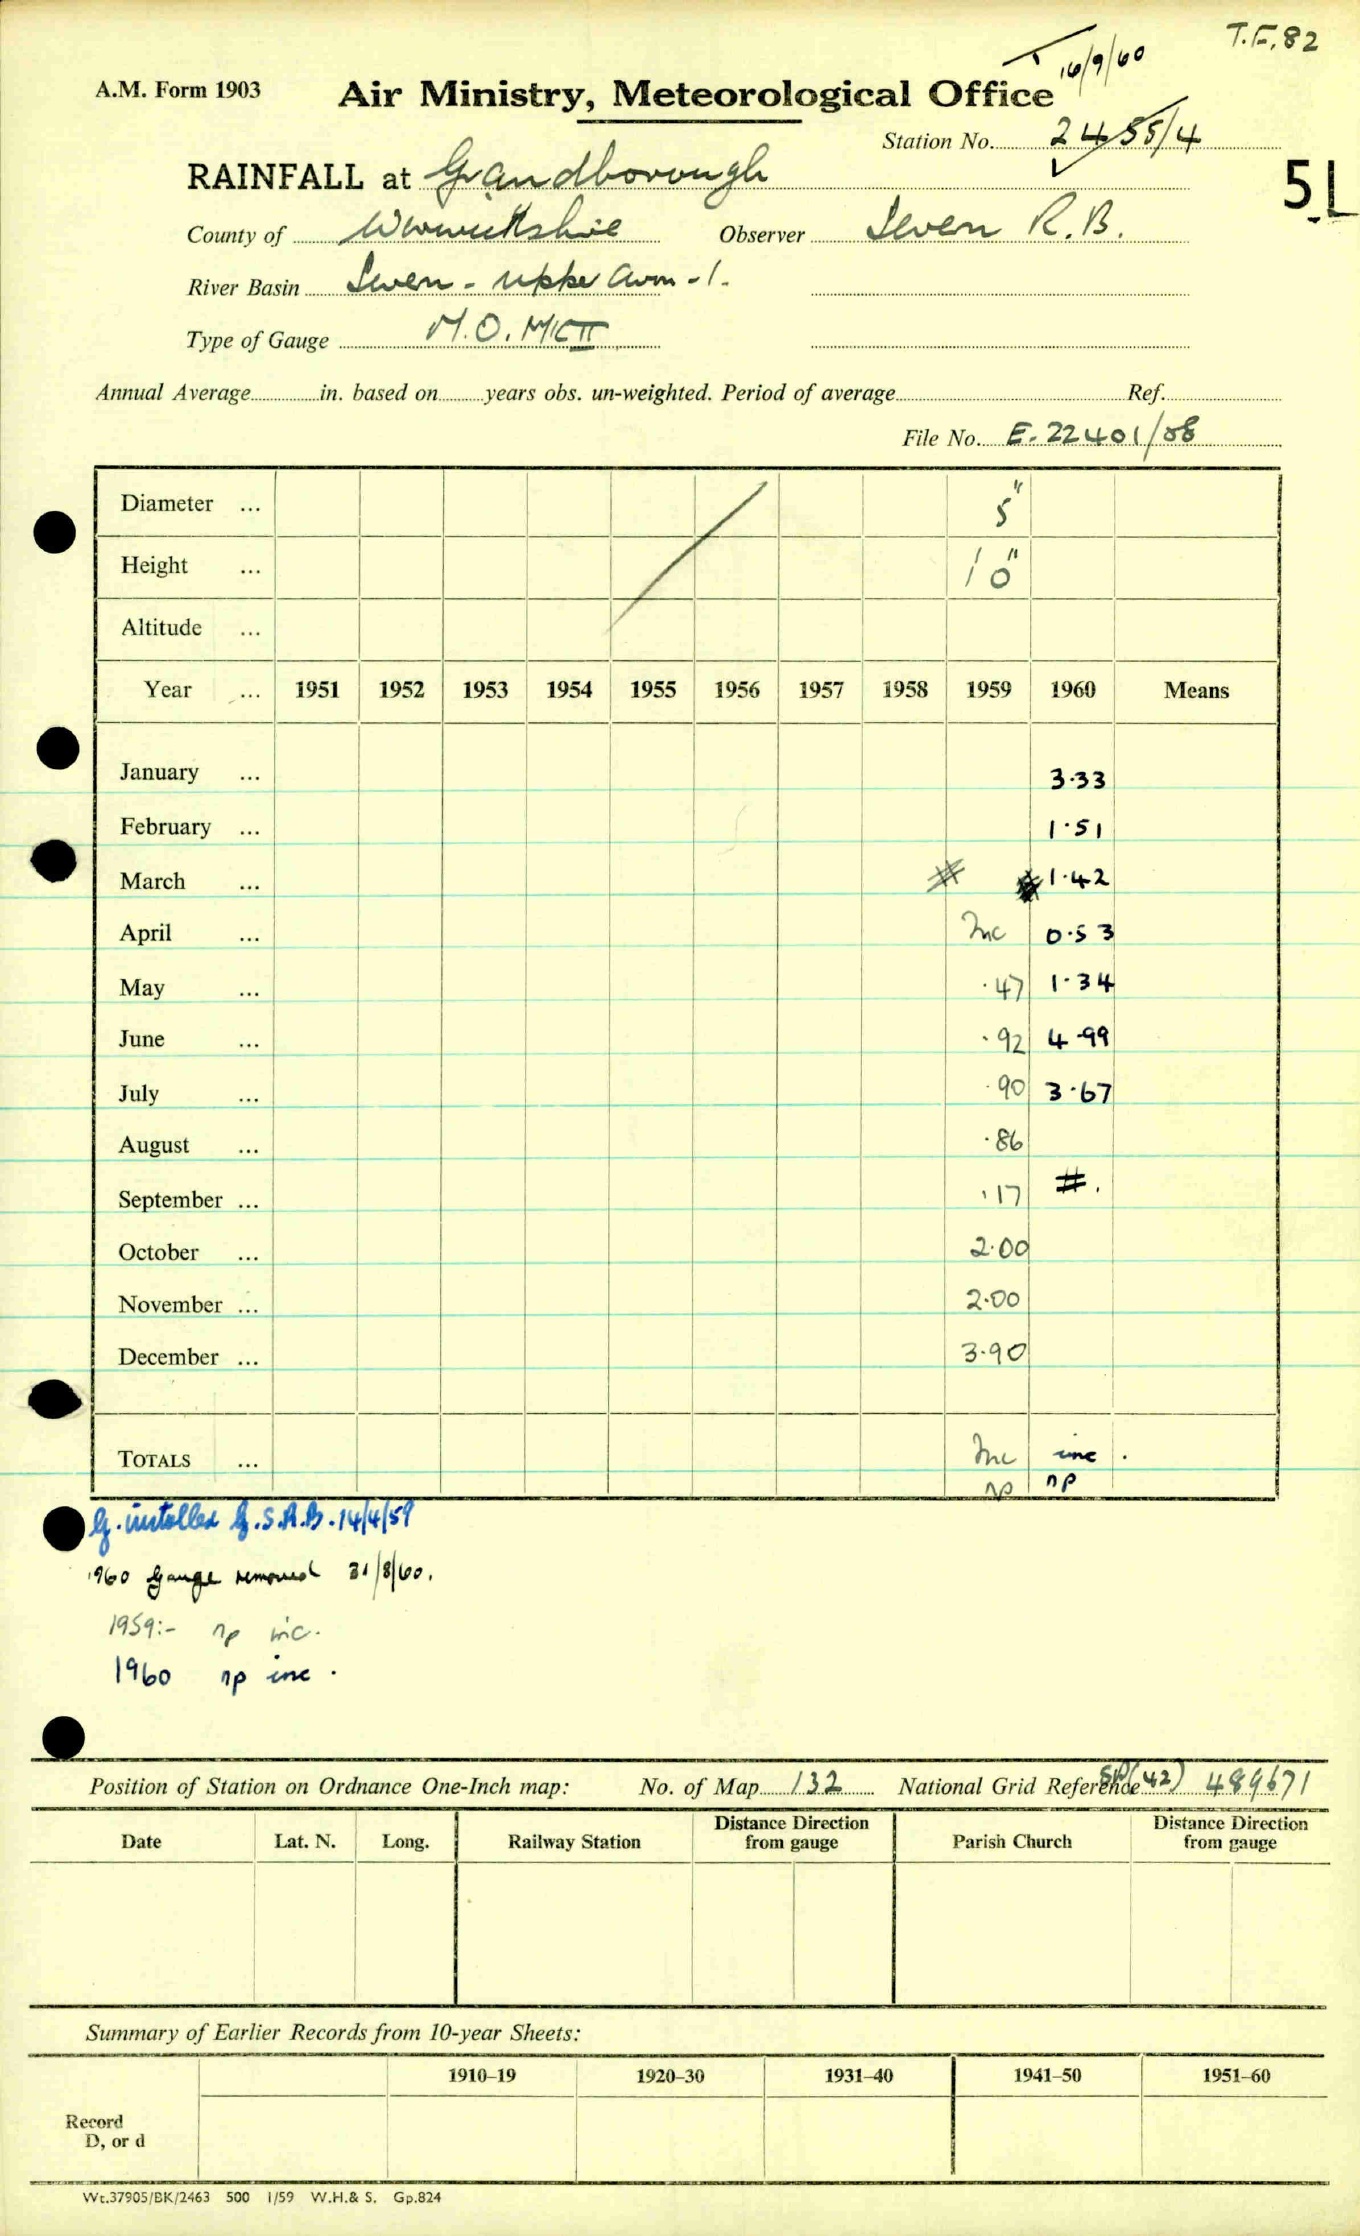 T.F. 82
16/9/60
A.M. Form 1903 Air Ministry, Meteorological Office
Station No. 2455/4
RAINFALL at Grandborough
5L
County of Warwickshire Observer Severn R.B.
River Basin Severn - Upper Avon - 1.
Type of Gauge M.O. MK II
Annual Average in. based on years obs. un-weighted. Period of average Ref.
File No. E. 22401/58
Diameter ... 5"
Height ... 1' 0"
Altitude ...
Year ... 1951 1952 1953 1954 1955 1956 1957 1958 1959 1960 Means
January ... 3.33
February ... 1.51
March ... # # 1.42
April ... Inc 0.53
May ... .47 1.34
June ... .92 4.99
July ... .90 3.67
August ... .86
September ... .17 #.
October ... 2.00
November ... 2.00
December ... 3.90
TOTALS ... Inc inc .
np np
G. installed G.S.R.B. 14/4/59
1960 Gauge removed 31/8/60.
1959:- np inc.
1960 np inc .
Position of Station on Ordnance One-Inch map: No. of Map 132 National Grid Reference SP(42) 489671
Date Lat. N. Long. Railway Station Distance Direction from gauge Parish Church Distance Direction from gauge
Summary of Earlier Records from 10-year Sheets:
1910–19 1920–30 1931–40 1941–50 1951–60
Record
D, or d
Wt.37905/BK/2463 500 1/59 W.H.& S. Gp.824